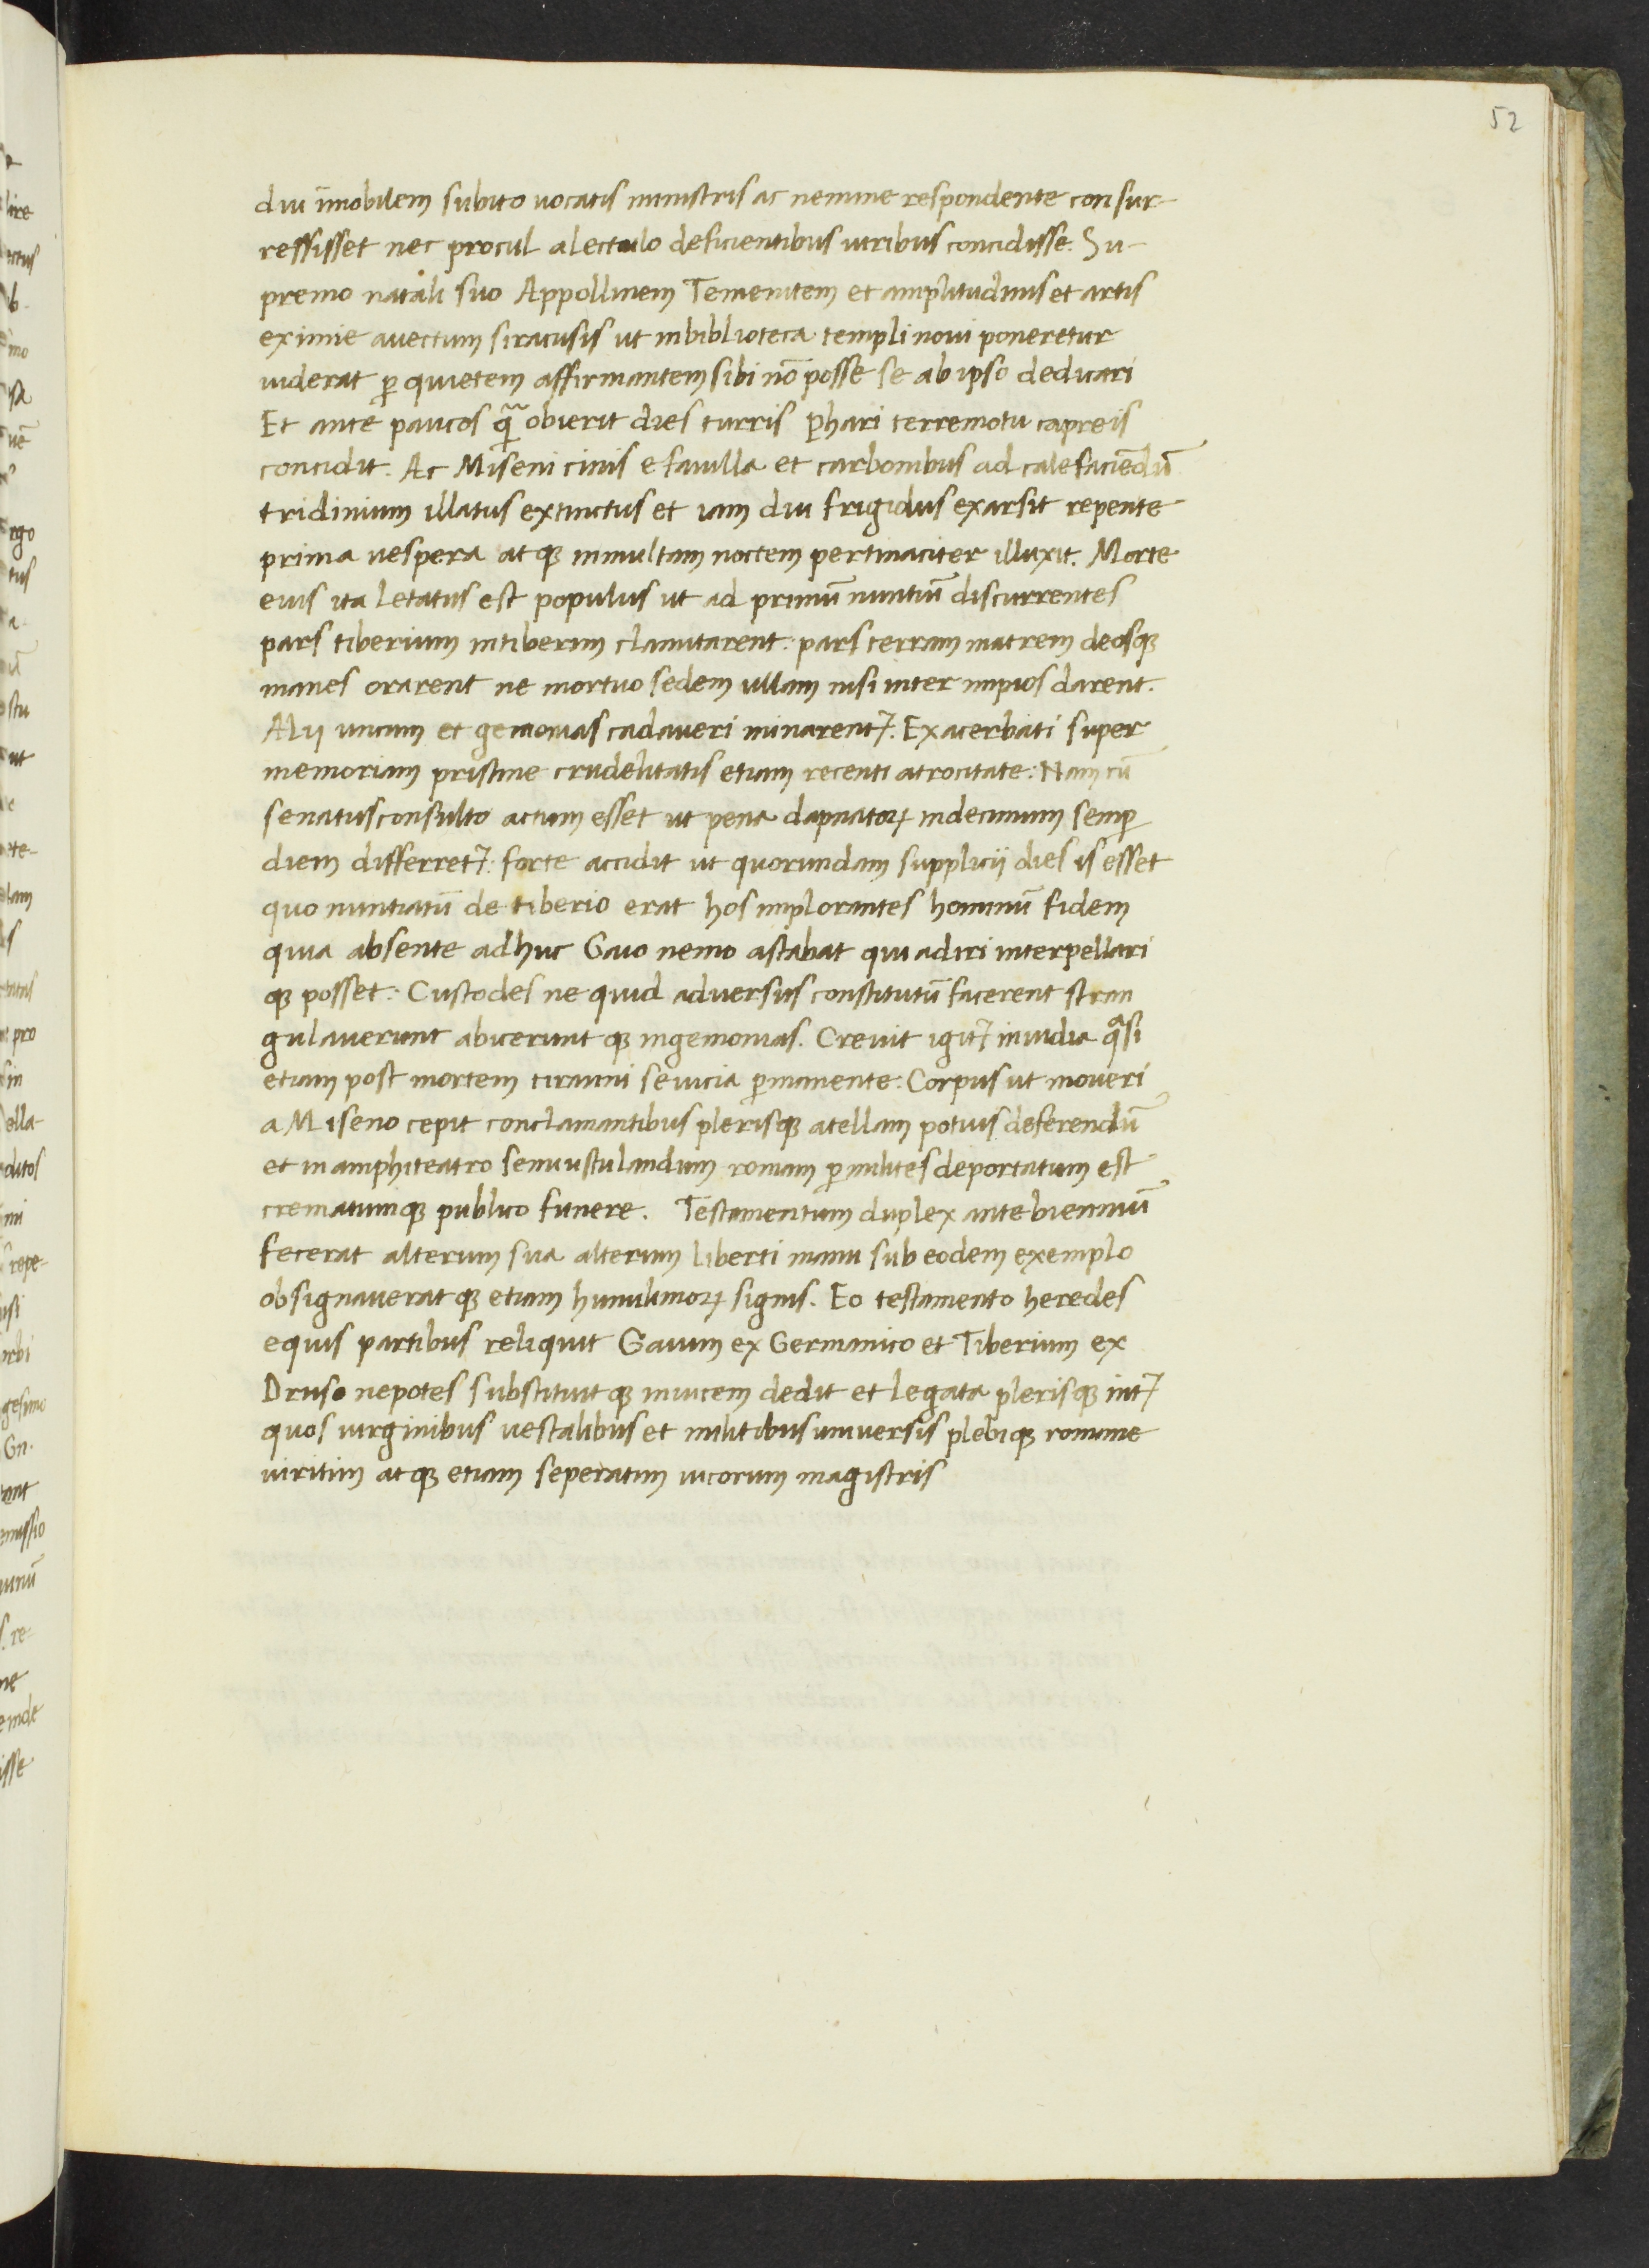 52
diu īmobilem subito uocatis ministris ac nemine respondente consur-
reffisset nec procul a lectulo deficientibus uiribus concidisse. Su-
premo natali suo Appollinem Temenitem et amplitudinis et artis
eximie auectum siracusis ut inbiblioteca templi noui poneretur
uiderat ꝑ quietem affirmantem sibi nō posse se ab ipso dedicari
Et ante paucos q̃ obierit dies turris Phari terremotu capreis
concidit. Ac Miseni cinis e fauilla et carbonibus ad calefaciēdū
tridinium illatus extinctus et iam diu frigidus exarsit repente
prima uespera atqꝫ inmultam noctem pertinaciter illuxit. Morte
eius ita letatus est populus ut ad primū nuntiū discurrentes
pars tiberium intiberim clamitarent: pars terram matrem deosqꝫ
manes orarent ne mortuo sedem ullam nisi inter impios darent.
Alij uncum et gemonias cadaueri minarent᷑. Exacerbati super
memoriam pristine crudelitatis etiam recenti atrocitate: Nam cū
senatusconsulto actum esset ut pena dapnatoꝝ indecimum semꝑ
diem differret᷑: forte accidit ut quorundam supplicij dies is esset
quo nuntiatū de tiberio erat hos implorantes hominū fidem
quia absente adhuc Gaio nemo astabat qui adiri interpellari
qꝫ posset: Custodes ne quid aduersus constitutū facerent stran
gulauerunt abicerunt qꝫ ingemonias. Creuit igit᷑ inuidia qͣsi
etiam post mortem tiranni seuicia ꝑmanente: Corpus ut moueri
a Miseno cepit conclamantibus plerisqꝫ atellam potius deferendū
et in amphiteatro semiustulandum romam ꝑ milites deportatum est
crematumqꝫ publico funere. Testamentum duplex ante biennium̄
fecerat alterum sua alterum liberti manu sub eodem exemplo
obsignaueratqꝫ etiam humilimoꝝ signis. Eo testamento heredes
equis partibus reliquit Gaium ex Germanico et Tiberium ex
Druso nepotes substituitqꝫ inuicem dedit et legata plerisqꝫ int᷑
quos uirginibus uestalibus et militibus uniuersis plebiqꝫ romane
uiritim atqꝫ etiam seperatim uicorum magistris